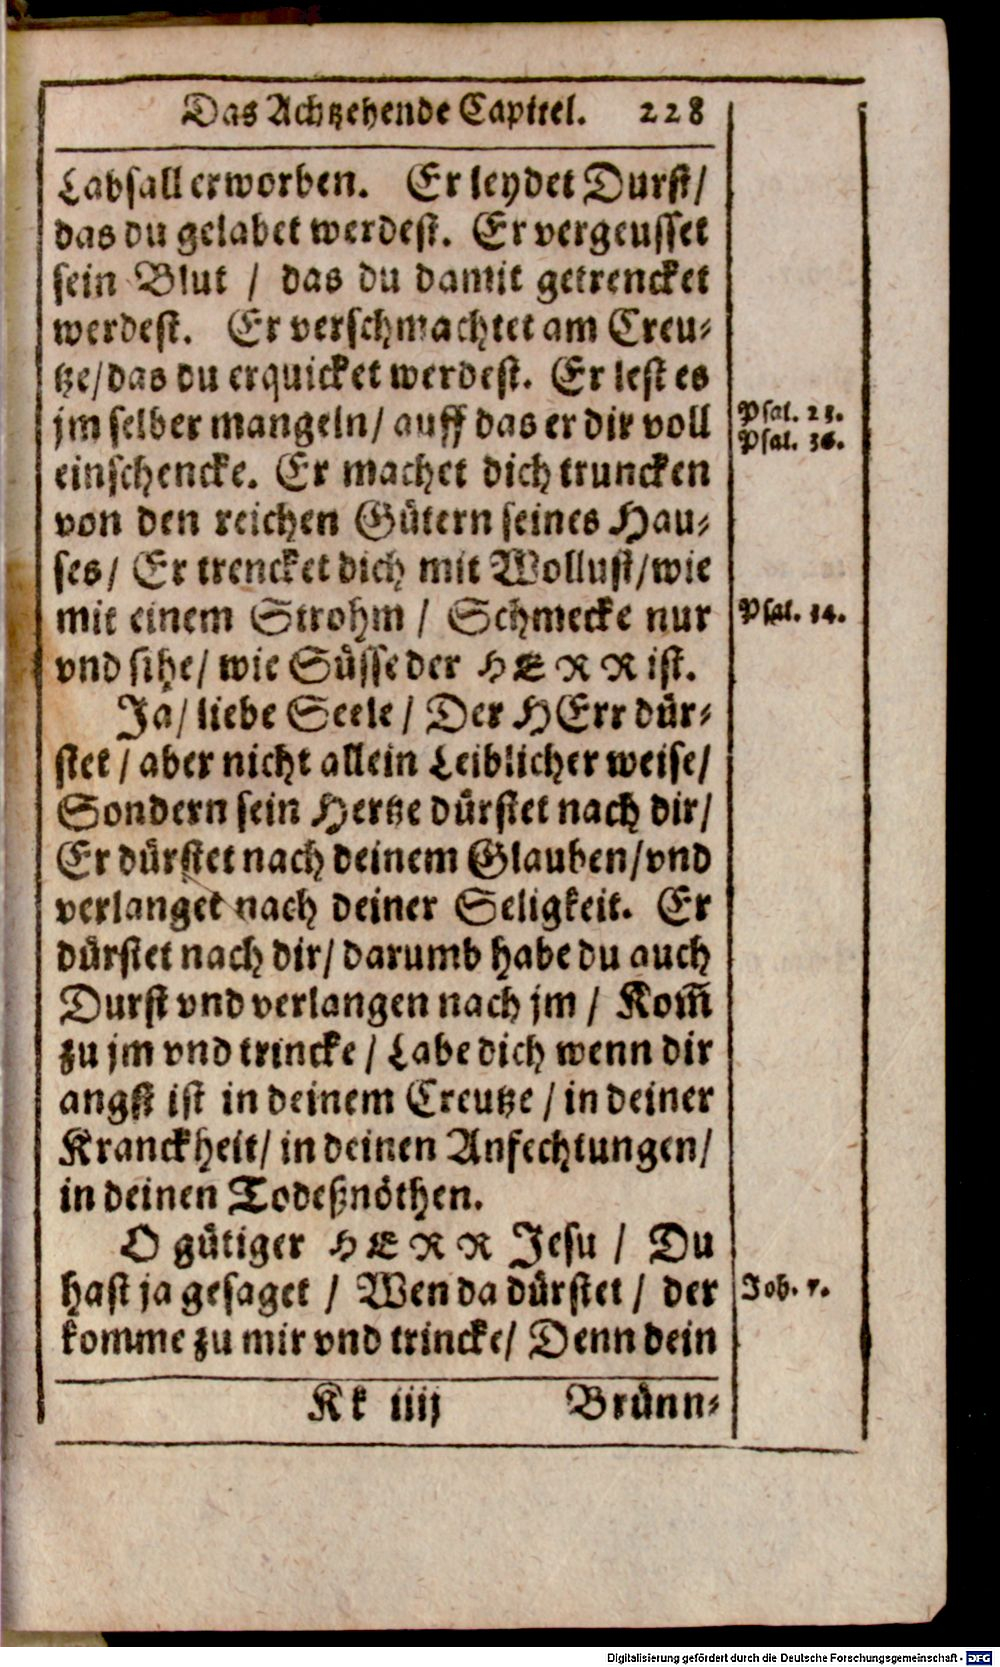 Das Achtzehende Capitel. 228
Labsall erworben. Er leydet Durst/
das du gelabet werdest. Er vergeusset
sein Blut / das du damit getrencket
werdest. Er verschmachtet am Creu⸗
tze/das du erquicket werdest. Er lest es
jm selber mangeln/ auff das er dir voll
einschencke. Er machet dich truncken
von den reichen Gütern seines Hau⸗
ses/ Er trencket dich mit Wollust/wie
mit einem Strohm / Schmecke nur
vnd sihe/ wie Süsse der HERR ist.
Ja/ liebe Seele / Der HErr dür⸗
stet / aber nicht allein Leiblicher weise/
Sondern sein Hertze dürstet nach dir/
Er dürstet nach deinem Glauben/vnd
verlanget nach deiner Seligkeit. Er
dürstet nach dir/ darumb habe du auch
Durst vnd verlangen nach jm / Kom̃
zu jm vnd trincke / Labe dich wenn dir
angst ist in deinem Creutze / in deiner
Kranckheit/ in deinen Anfechtungen/
in deinen Todeßnöthen.
O gütiger HERR Jesu / Du
hast ja gesaget / Wen da dürstet / der
komme zu mir vnd trincke/ Denn dein
Kk iiij Brünn⸗
Psal. 23.
Psal. 36.
Psal. 34.
Joh. 7.
Digitalisierung gefördert durch die Deutsche Forschungsgemeinschaft - DFG